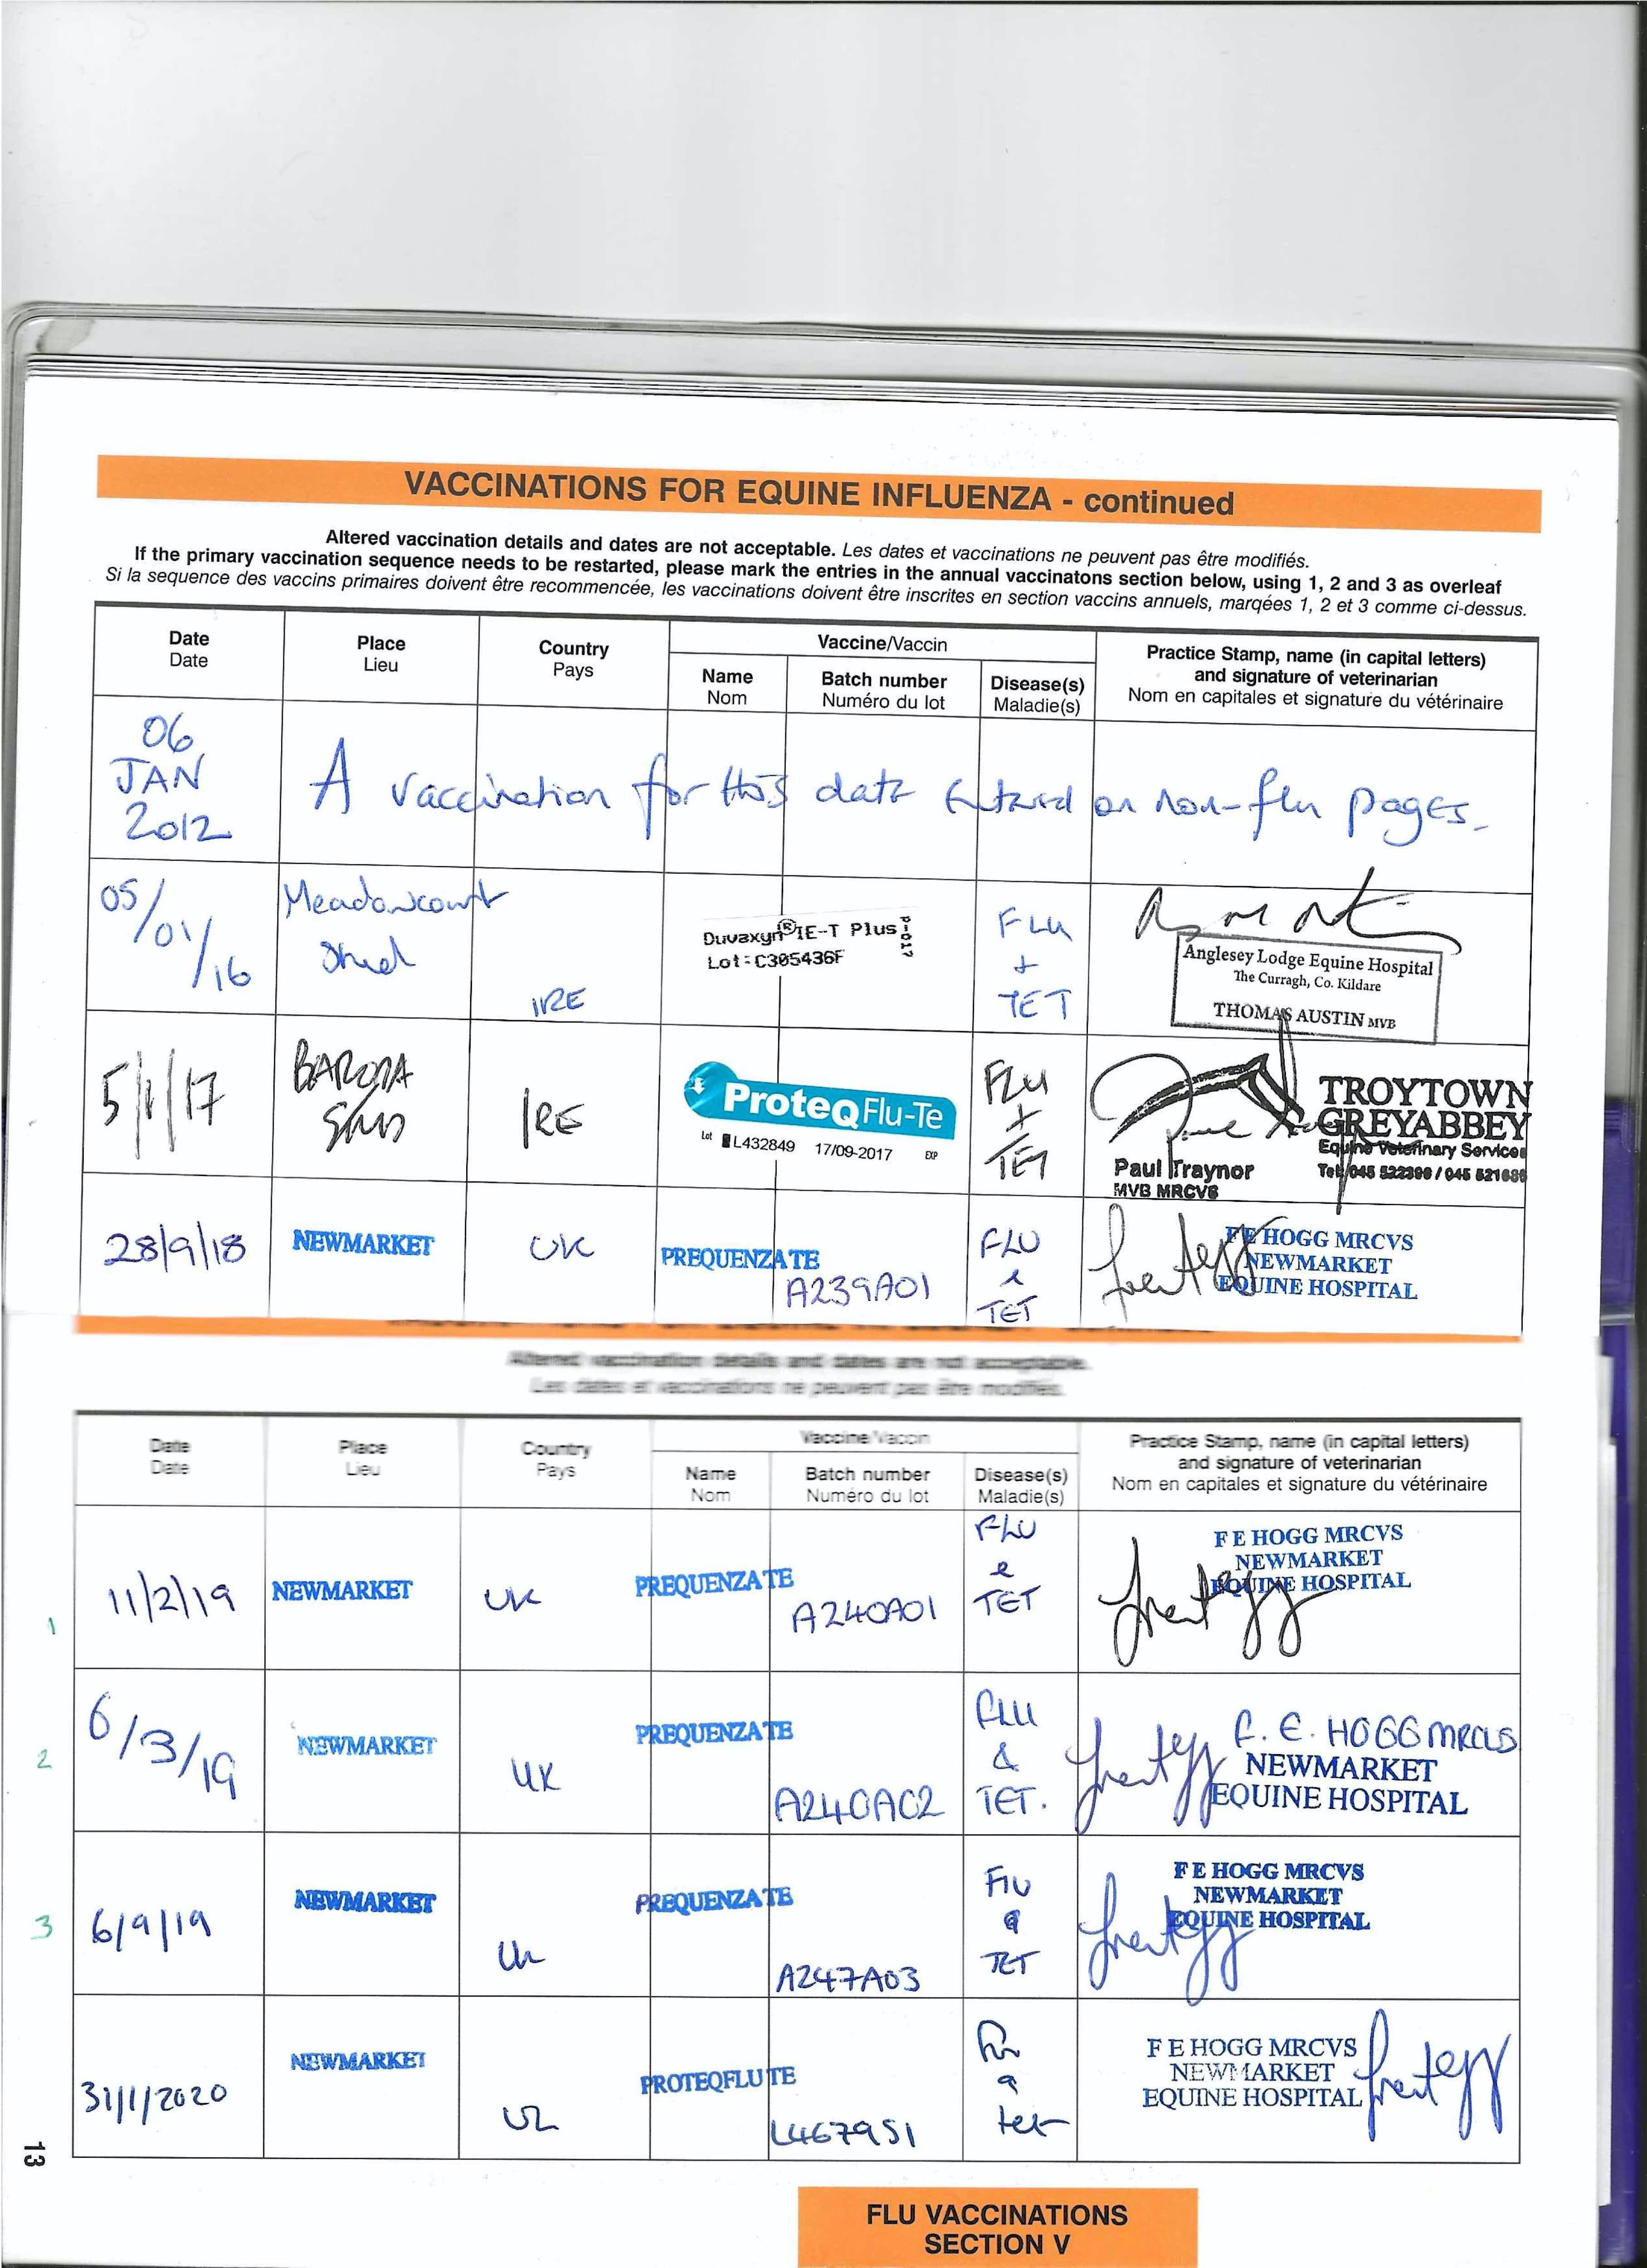 VACCINATIONS FOR EQUINE INFLUENZA - continued
Altered vaccination details and dates are not acceptable. Les dates et vaccinations ne peuvent pas être modifiés.
If the primary vaccination sequence needs to be restarted, please mark the entries in the annual vaccinatons section below, using 1, 2 and 3 as overleaf
Si la sequence des vaccins primaires doivent être recommencée, les vaccinations doivent être inscrites en section vaccins annuels, marqées 1, 2 et 3 comme ci-dessus.
Date
Date
Place
Lieu
Country
Pays
Vaccine/Vaccin
Name
Nom
Batch number
Numéro du lot
Disease(s)
Maladie(s)
Practice Stamp, name (in capital letters)
and signature of veterinarian
Nom en capitales et signature du vétérinaire
06
JAN
2012
A vaccination for this date entered on non-flu pages.
05/01/16
Meadowcourt
Stud
IRE
Duvaxyn® IE-T Plus
Lot: C305436F
FLU
+
TET
Anglesey Lodge Equine Hospital
The Curragh, Co. Kildare
THOMAS AUSTIN MVB
5/1/17
BARODA
STUD
IRE
ProteqFlu-Te
Lot L432849 17/09-2017 EXP
FLU
+
TET
TROYTOWN
GREYABBEY
Equine Veterinary Services
Paul Traynor
MVB MRCVS
28/9/18
NEWMARKET
UK
PREQUENZA TE
A239A01
FLU
&
TET
F E HOGG MRCVS
NEWMARKET
EQUINE HOSPITAL
Altered vaccination details and dates are not acceptable.
Les dates et vaccinations ne peuvent pas être modifiés.
Date
Date
Place
Lieu
Country
Pays
Vaccine/Vaccin
Name
Nom
Batch number
Numéro du lot
Disease(s)
Maladie(s)
Practice Stamp, name (in capital letters)
and signature of veterinarian
Nom en capitales et signature du vétérinaire
1
11/2/19
NEWMARKET
UK
PREQUENZA TE
A240A01
FLU
&
TET
F E HOGG MRCVS
NEWMARKET
EQUINE HOSPITAL
2
6/3/19
NEWMARKET
UK
PREQUENZA TE
A240A02
FLU
&
TET.
F. E. HOGG MRCVS
NEWMARKET
EQUINE HOSPITAL
3
6/9/19
NEWMARKET
UK
PREQUENZA TE
A247A03
Flu
&
TET
F E HOGG MRCVS
NEWMARKET
EQUINE HOSPITAL
31/1/2020
NEWMARKET
UK
PROTEQFLU TE
L467951
Flu
&
tet
F E HOGG MRCVS
NEWMARKET
EQUINE HOSPITAL
13
FLU VACCINATIONS
SECTION V